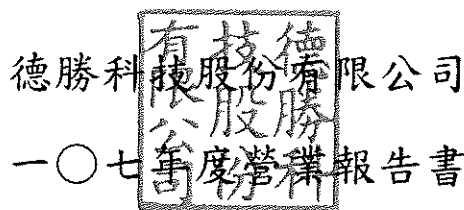 德勝科技股份有限公司
一○七年度營業報告書
德勝科
技股份
有限公司